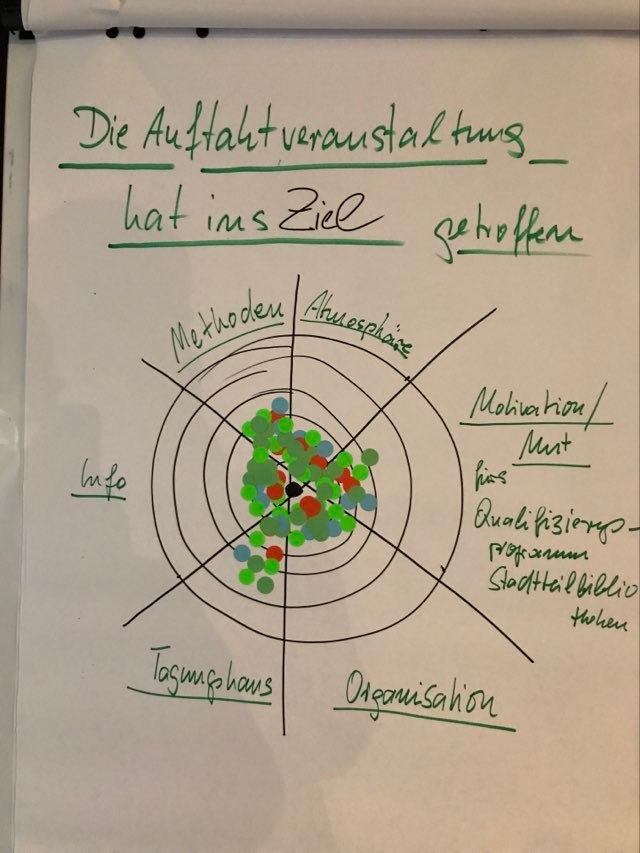 Die Auftaktveranstaltung
hat ins Ziel getroffen
Methoden
Atmosphäre
Info
Motivation/
Mut
fürs
Qualifizierungs-
programm
Stadtteilbiblio
theken
Tagungshaus
Organisation